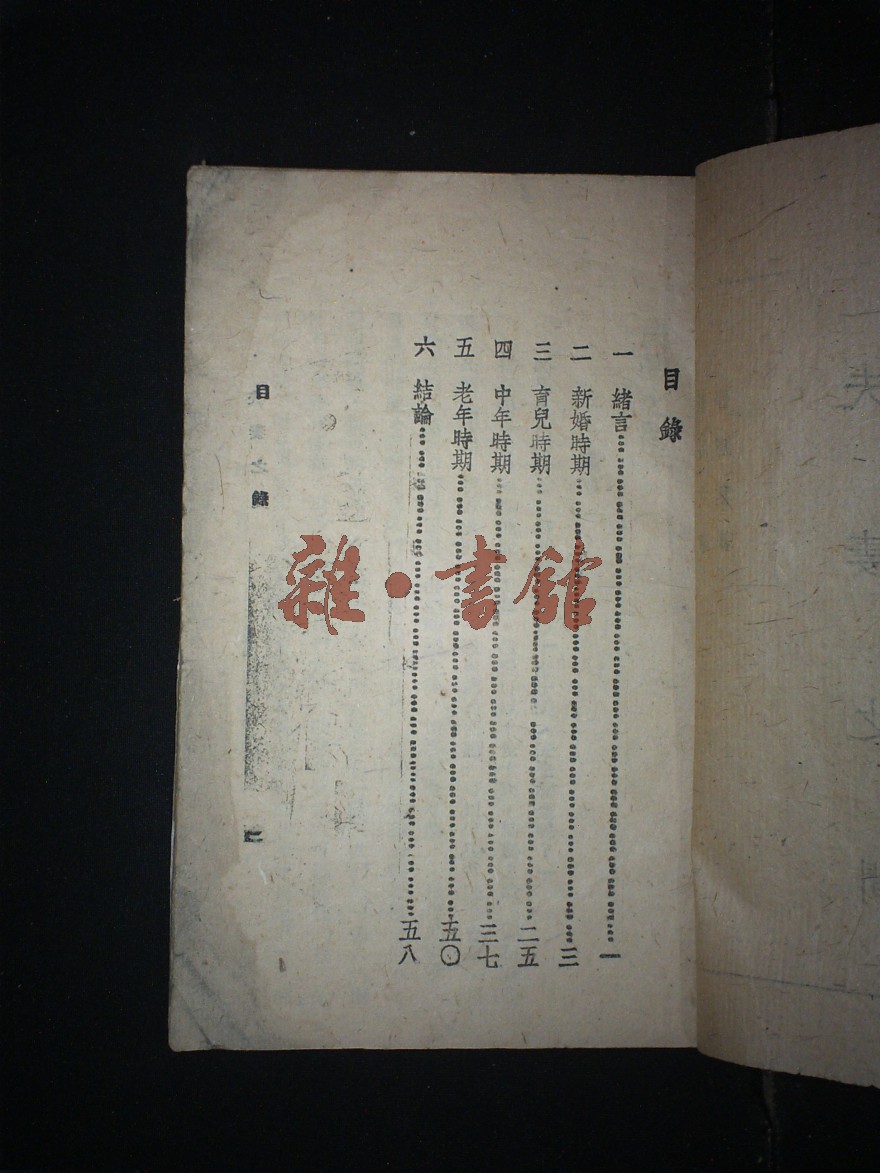 目錄
一 緒言 一
二 新婚時期 三
三 育兒時期 二五
四 中年時期 三七
五 老年時期 五〇
六 結論 五八
目錄
一
雜·書館